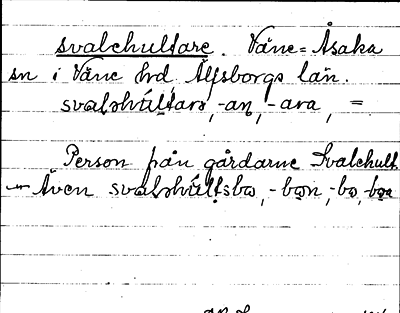 svalehultare. Väne-Åsaka
sn i Väne hrd Älfsborgs län.
svaləhúltarə, -an, -ara, =
Person från gårdarne Svalehult.
– Även svaləhúltsbo, -bon, -bo,